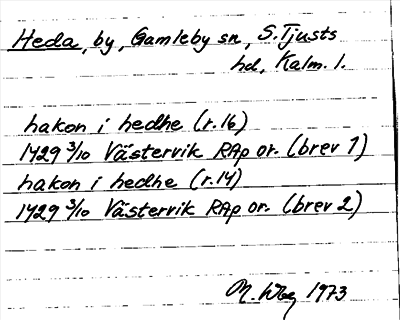 Heda, by, Gamleby sn, S. Tjusts
hd, Kalm. l.
hakon i hedhe (r.16)
1429 3/10 Västervik RAp or. (brev 1)
hakon i hedhe (r.14)
1429 3/10 Västervik RAp or. (brev 2)
M. 1973